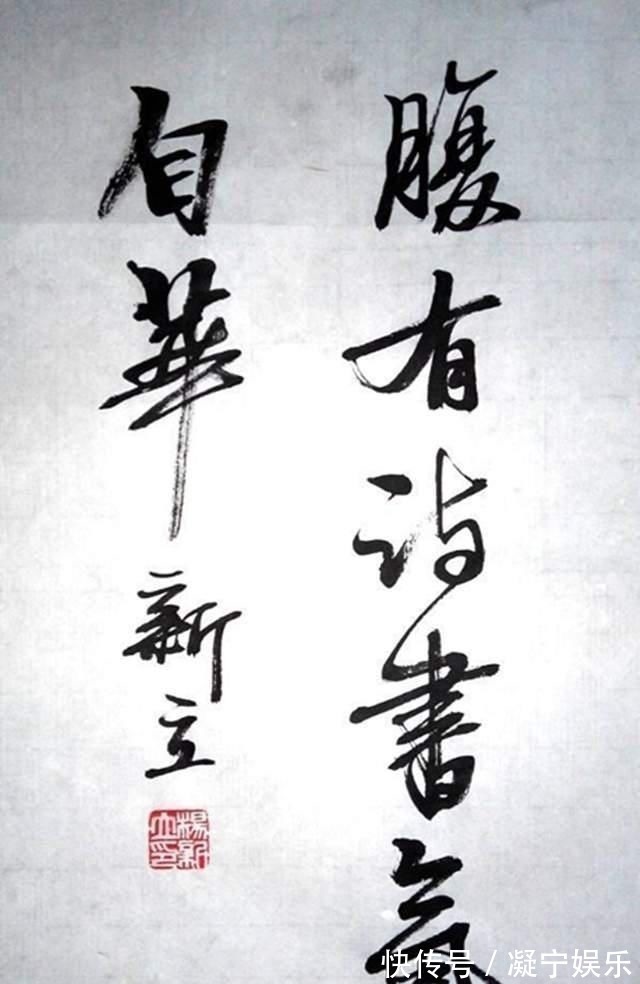 腹有诗書氣
自華
新立
楊新立印
快传号／凝宁娱乐